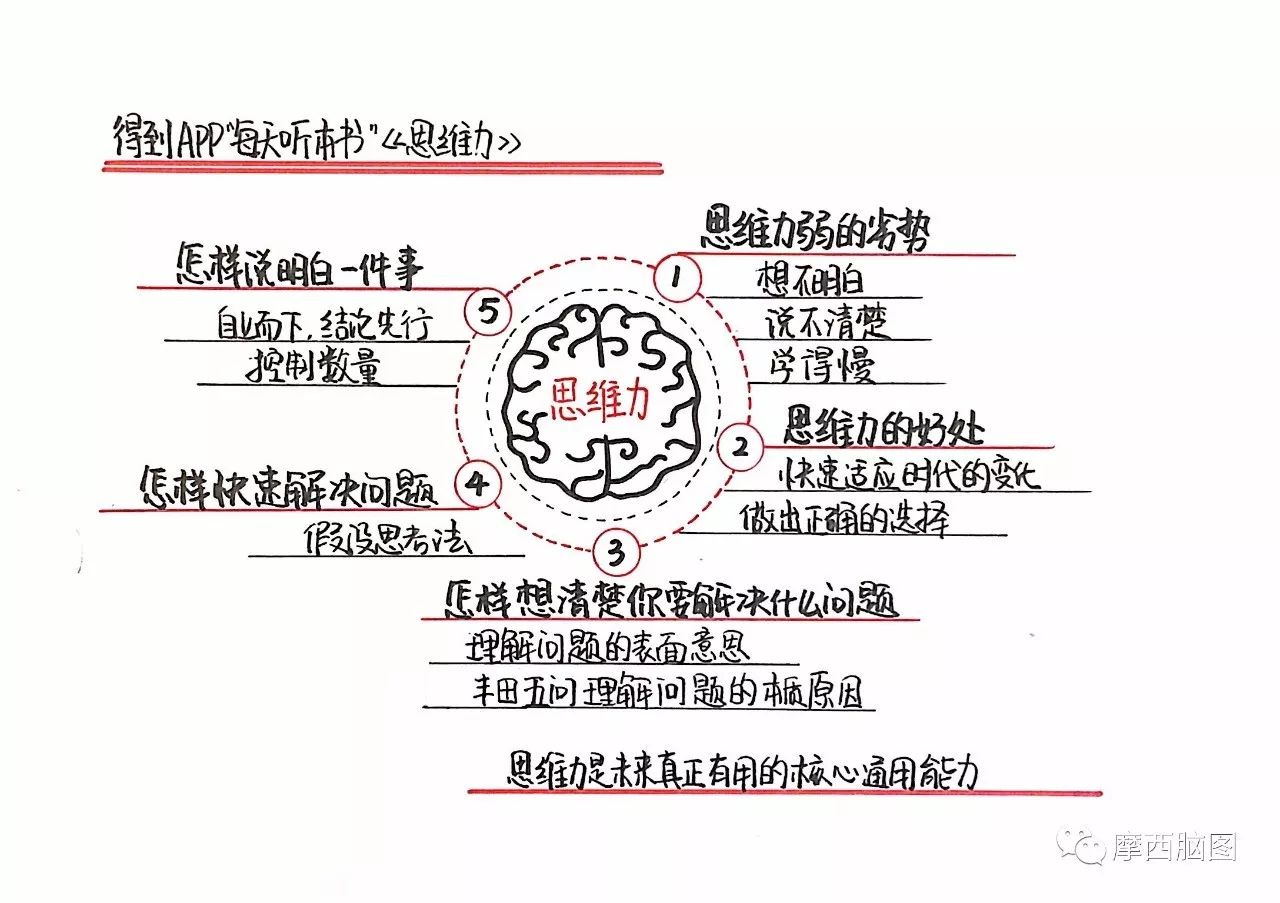 得到APP"每天听本书"《思维力》
思维力
1
思维力弱的劣势
想不明白
说不清楚
学得慢
2
思维力的好处
快速适应时代的变化
做出正确的选择
3
怎样想清楚你要解决什么问题
理解问题的表面意思
丰田五问理解问题的本质原因
4
怎样快速解决问题
假设思考法
5
怎样说明白一件事
自上而下,结论先行
控制数量
思维力是未来真正有用的核心通用能力
摩西脑图